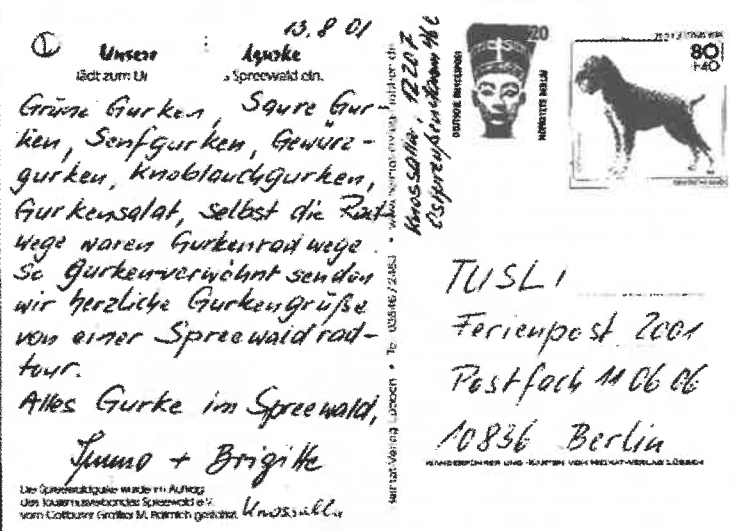 13.8.01
Unsere Gurke
lädt zum Spreewald ein.
Grüne Gurken, Saure Gur-
ken, Senfgurken, Gewürz-
gurken, Knoblauchgurken,
Gurkensalat, selbst die Rad-
wege waren Gurkenradwege.
So gurkenverwöhnt senden
wir herzliche Gurkengrüße
von einer Spreewaldrad-
tour.
Alles Gurke im Spreewald,
Immo + Brigitte
Knossalla
Die Spreewaldgurke wurde im Auftrag
des Tourismusverbandes Spreewald e.V.
vom Cottbuser Grafiker M. gestaltet.
Heimat-Verlag Lübben • Tel.
Knossalla, 12207
Ostpreußendamm
20
DEUTSCHE BUNDESPOST
NOFRETETE BERLIN
80
+40
TUSLI
Ferienpost 2001
Postfach 11 06 06
10836 Berlin
WANDERFÜHRER UND -KARTEN VOM HEIMAT-VERLAG LÜBBEN